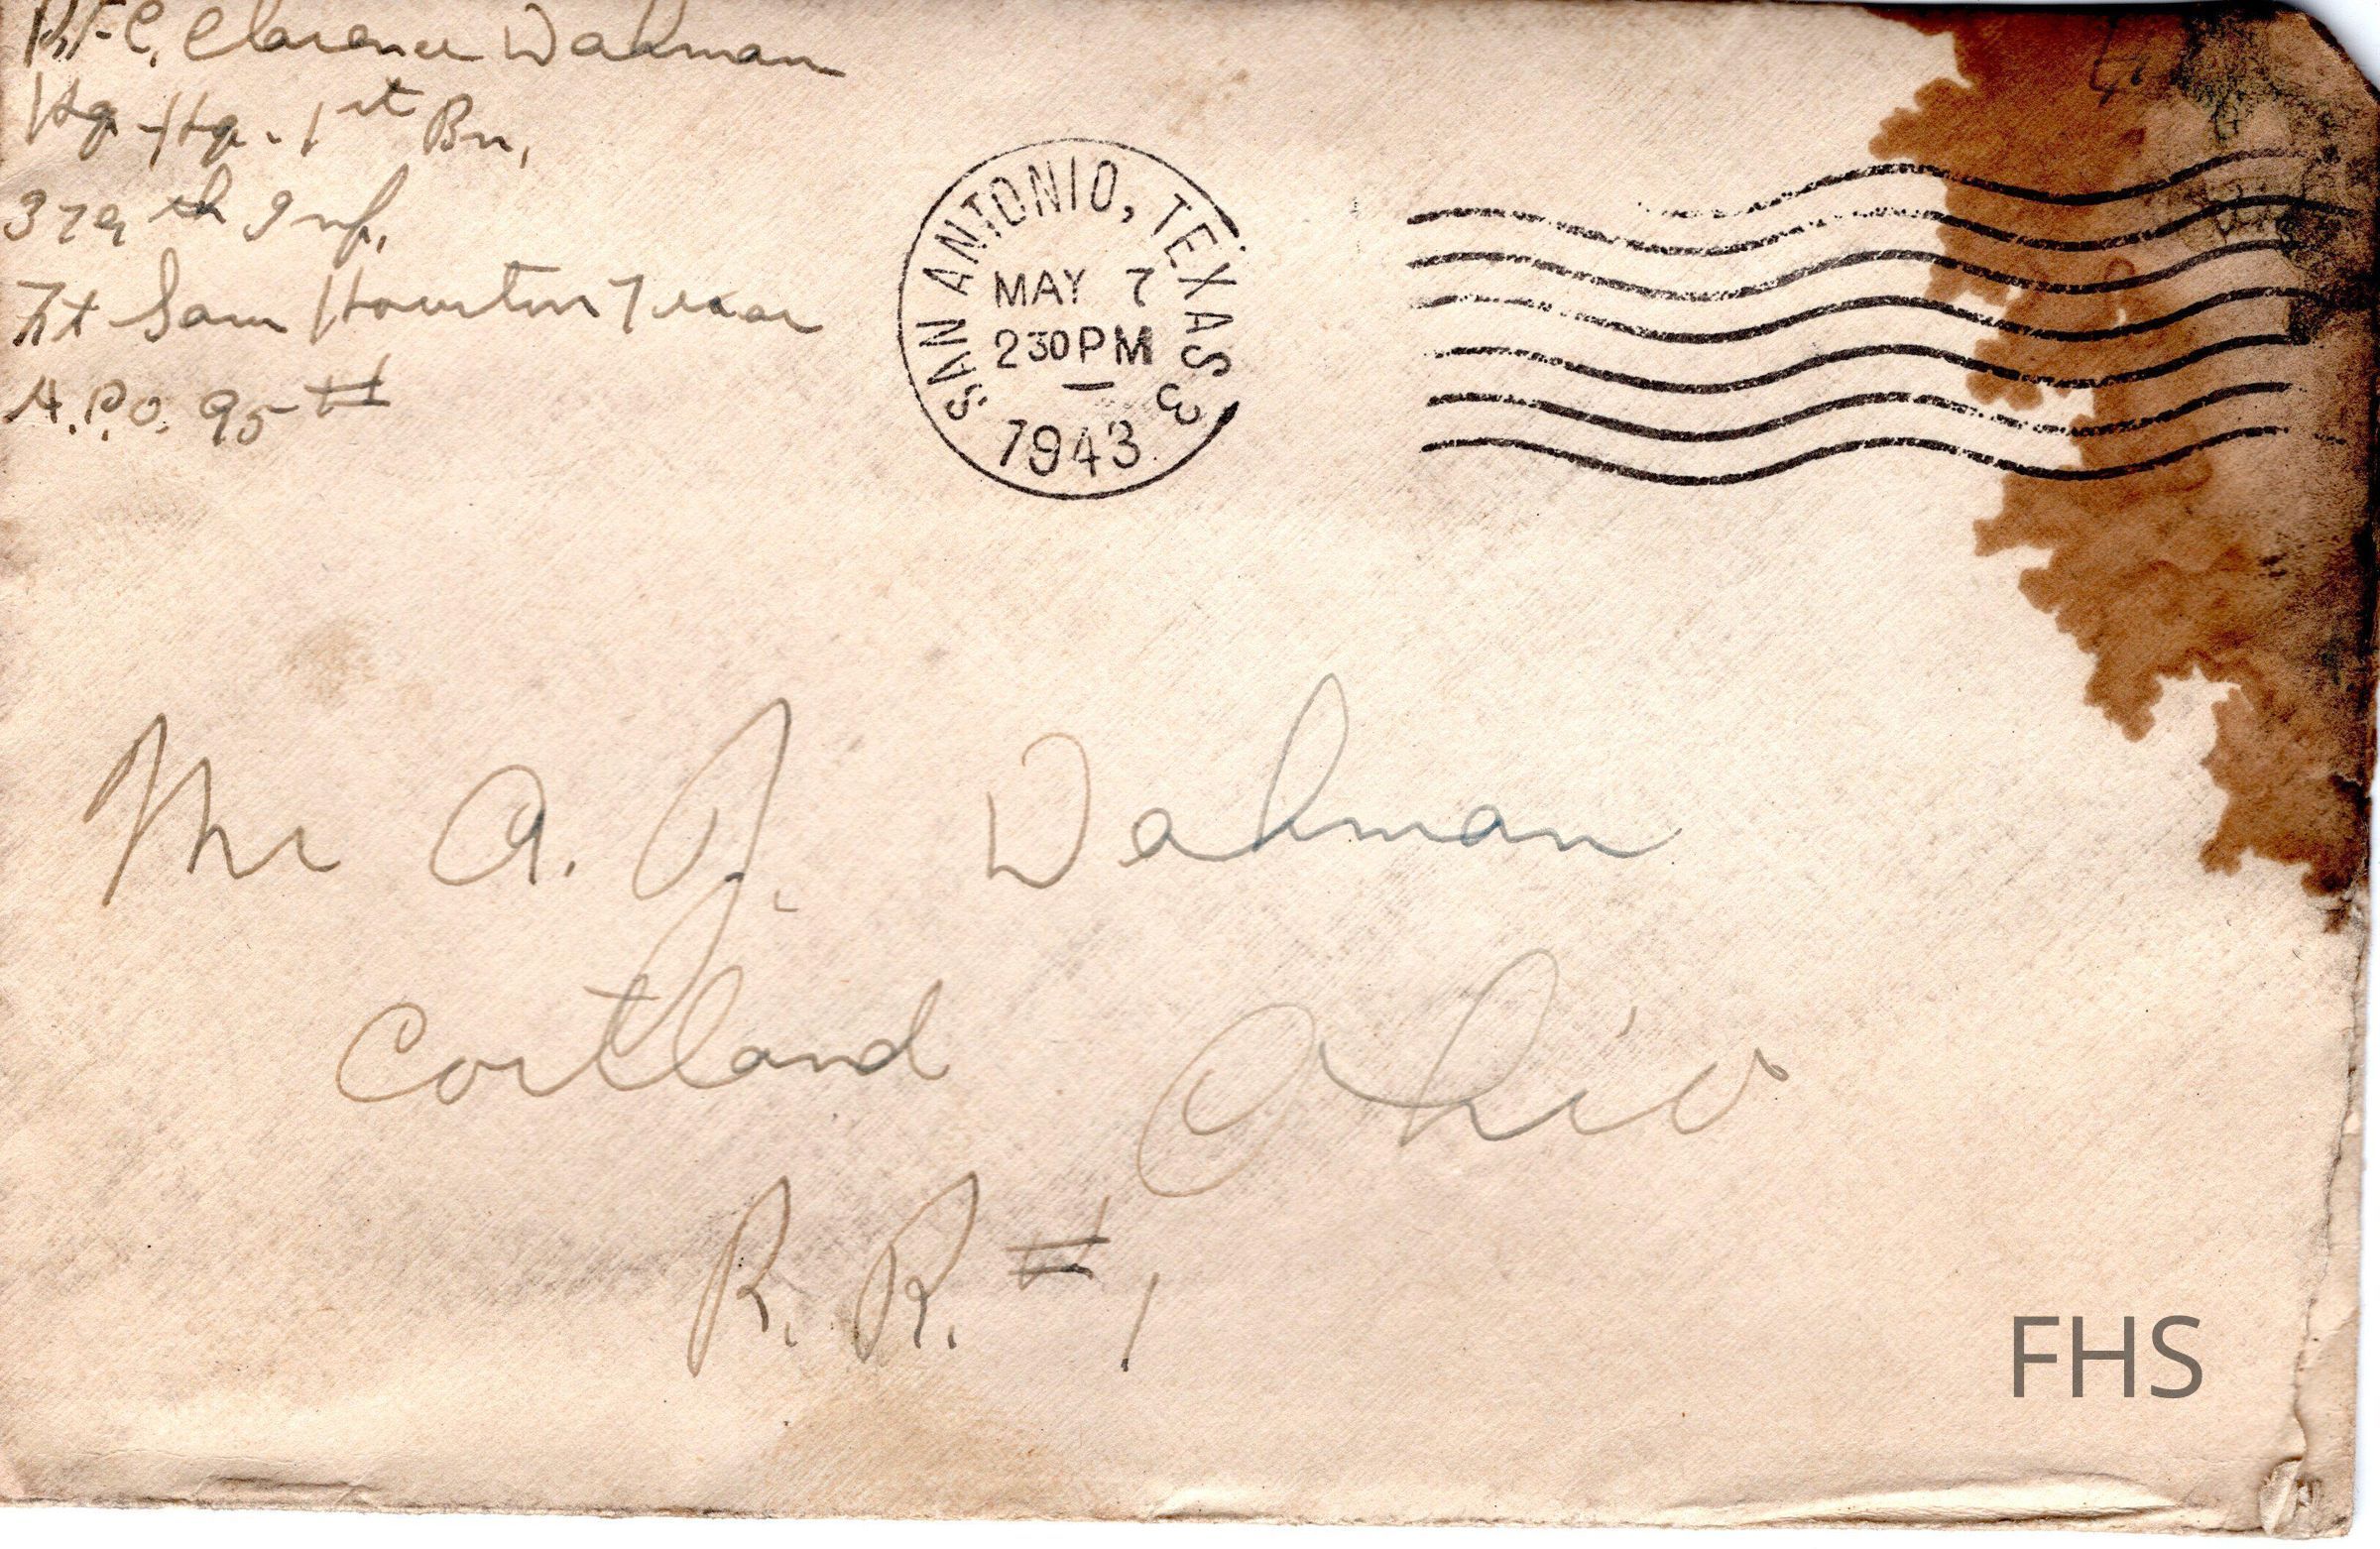 P.F.C. Clarence Dahman
Hq-Hq. 1st Bn,
379th Inf.
Ft Sam Houston Texas
A.P.O. 95 #
SAN ANTONIO, TEXAS 3
MAY 7
230PM
1943
Mr A. J. Dahman
Cortland Ohio
R. R. # 1
FHS